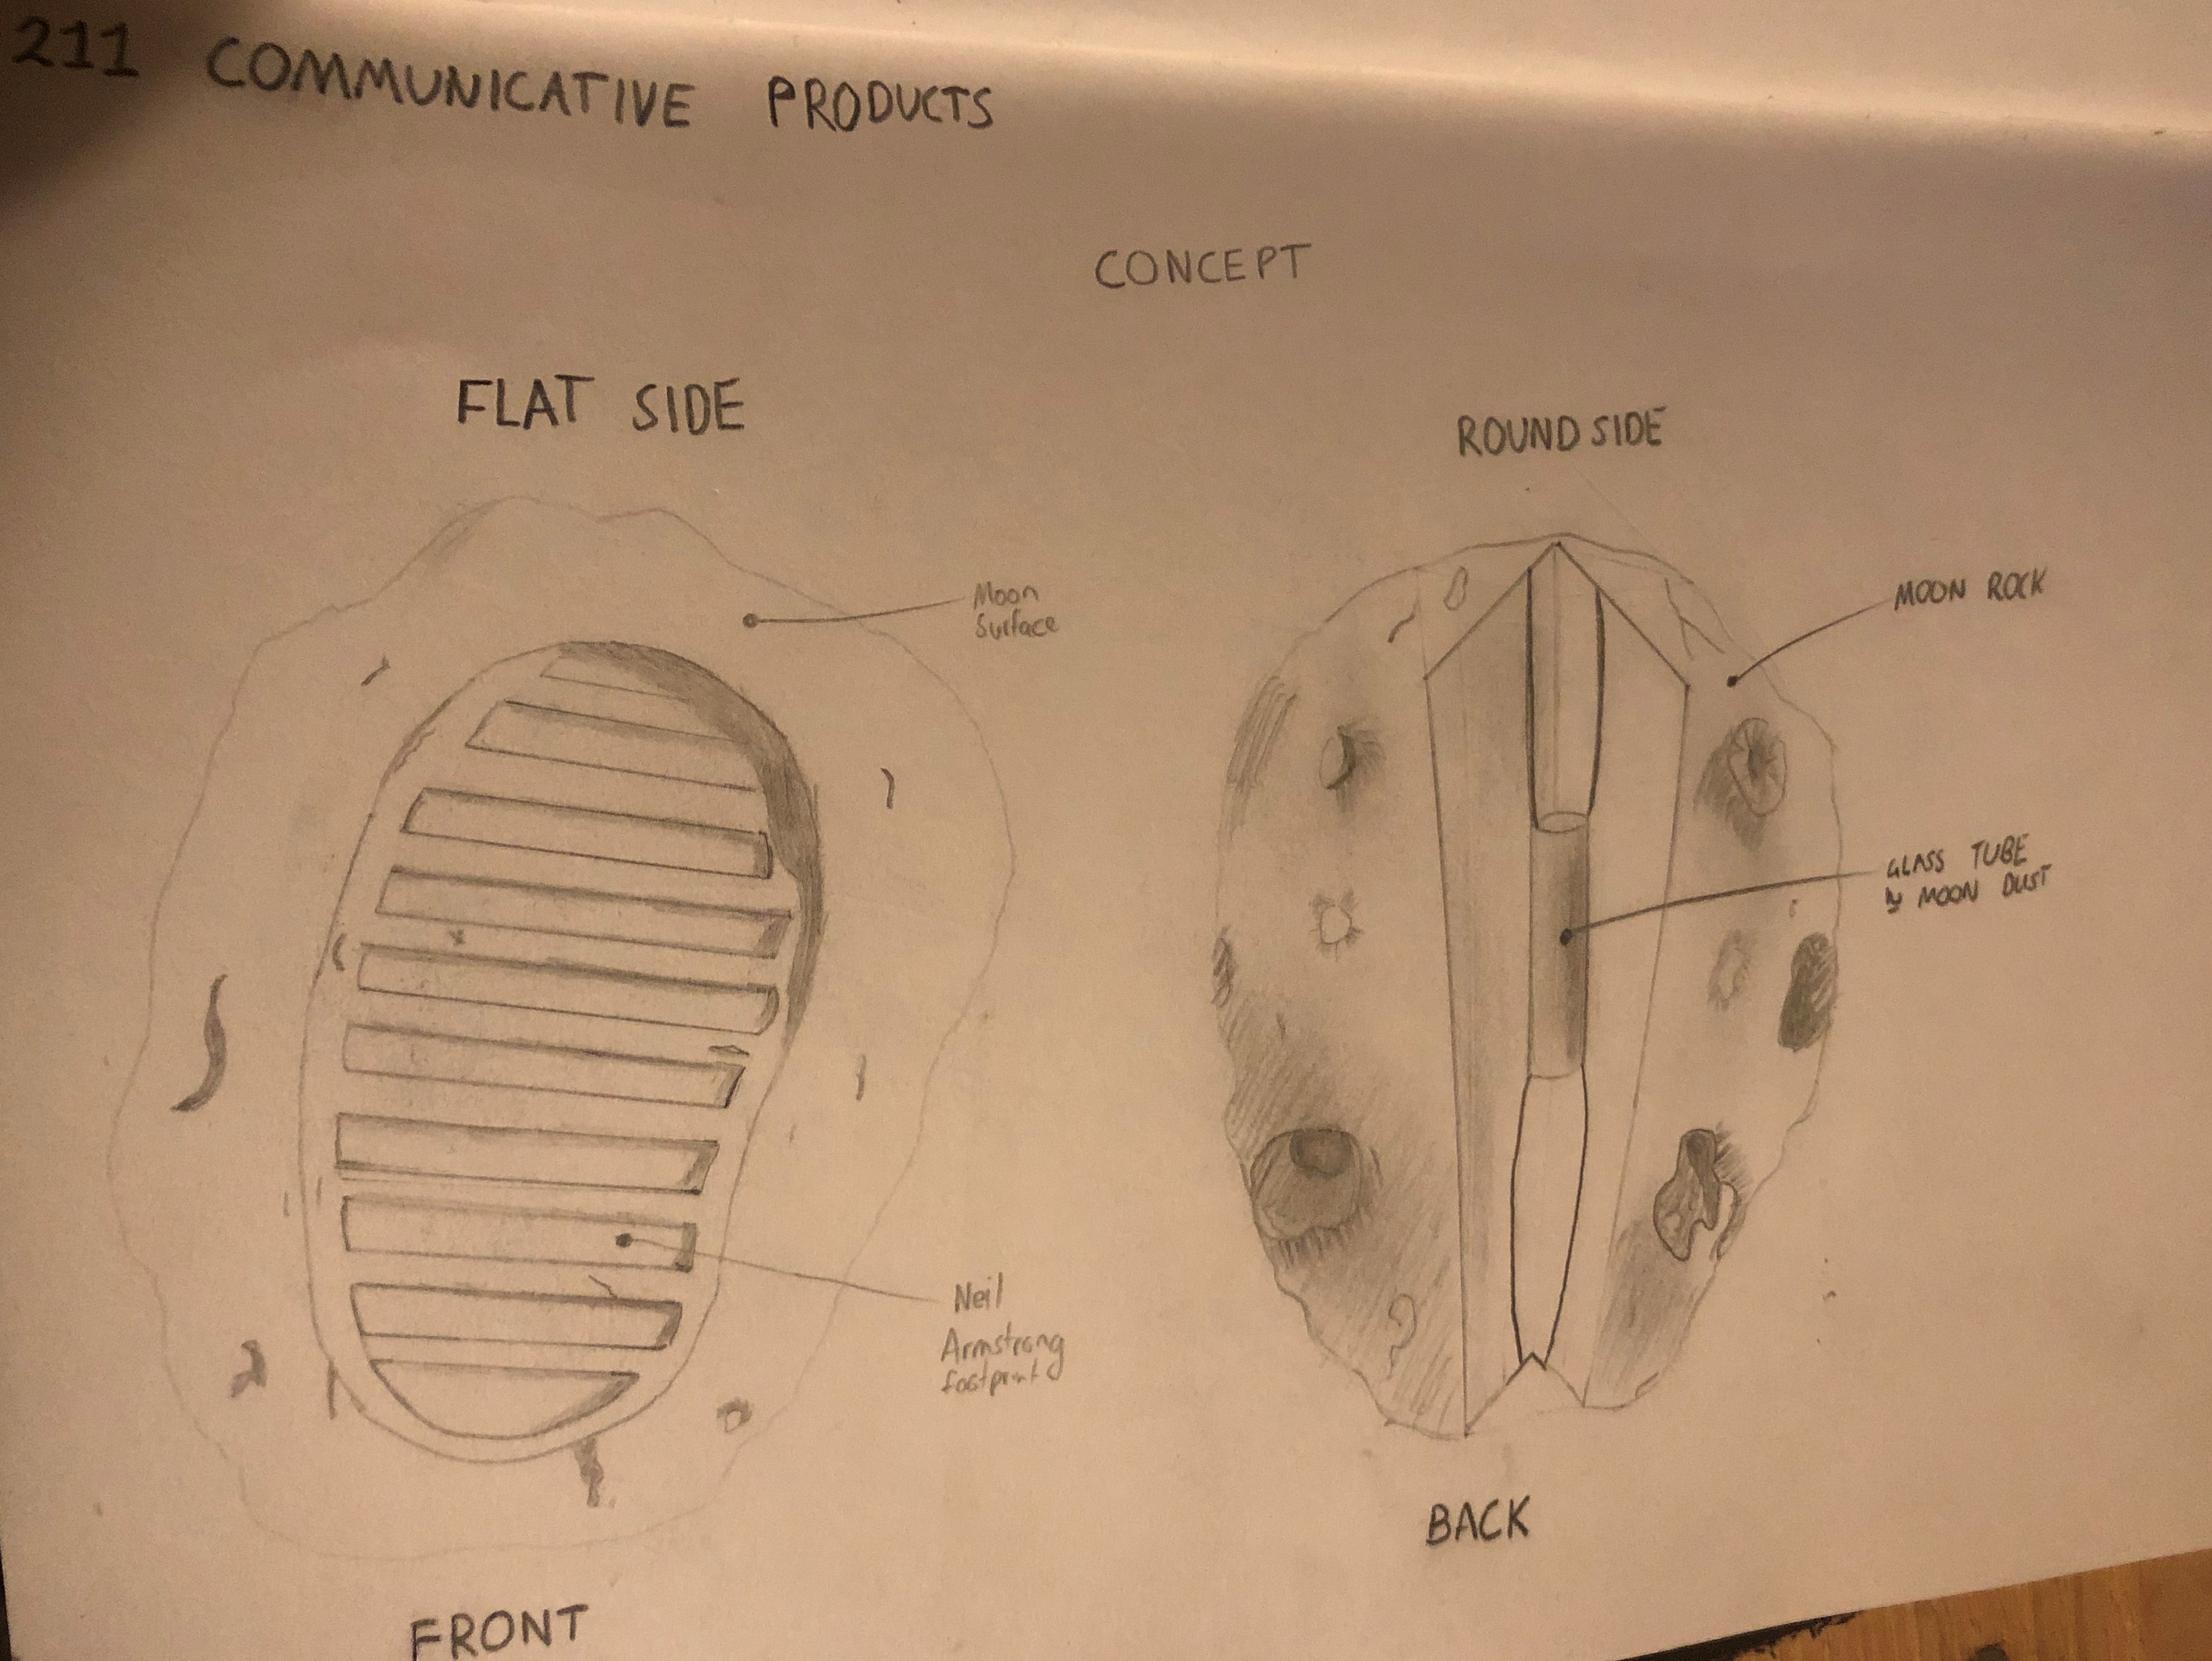 211 COMMUNICATIVE PRODUCTS
CONCEPT
FLAT SIDE
Moon
Surface
Neil
Armstrong
footprint
FRONT
ROUND SIDE
MOON ROCK
GLASS TUBE
MOON DUST
BACK